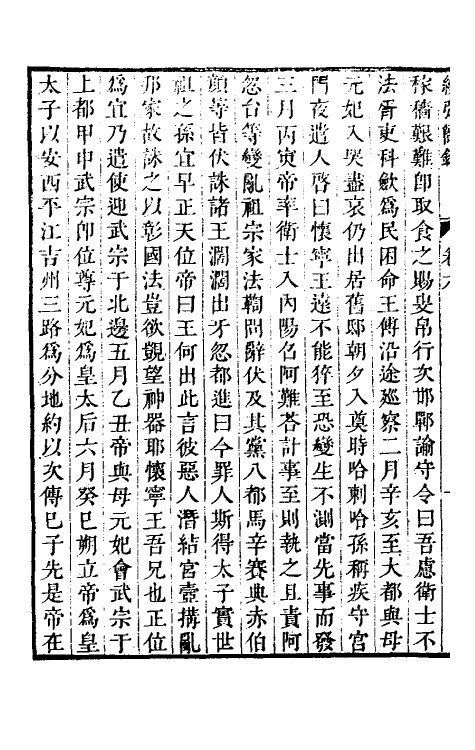 續弘簡錄 卷六
稼穡艱難卽取食之賜叟帛行次邯鄲諭守令曰吾慮衛士不
法胥吏科歛爲民困命王傅沿途廵察二月辛亥至大都與母
元妃入哭盡哀仍出居舊邸朝夕入奠時哈剌哈孫稱疾守宮
門夜遣人啓曰懷寧王遠不能猝至恐變生不測當先事而發
三月丙寅帝率衛士入內陽召阿難荅計事至則執之且責阿
忽台等變亂祖宗家法鞫問辭伏及其黨八都馬辛賽典赤伯
顏等皆伏誅諸王濶濶出牙忽都進曰今罪人斯得太子實世
祖之孫宜早正天位帝曰王何出此言彼惡人潛結宮壼搆亂
邦家故誅之以彰國法豈欲觀望神器耶懷寧王吾兄也正位
爲宜乃遣使迎武宗于北邊五月乙丑帝與母元妃會武宗于
上都甲申武宗卽位尊元妃爲皇太后六月癸巳朔立帝爲皇
太子以安西平江吉州三路爲分地約以次傳巳子先是帝在